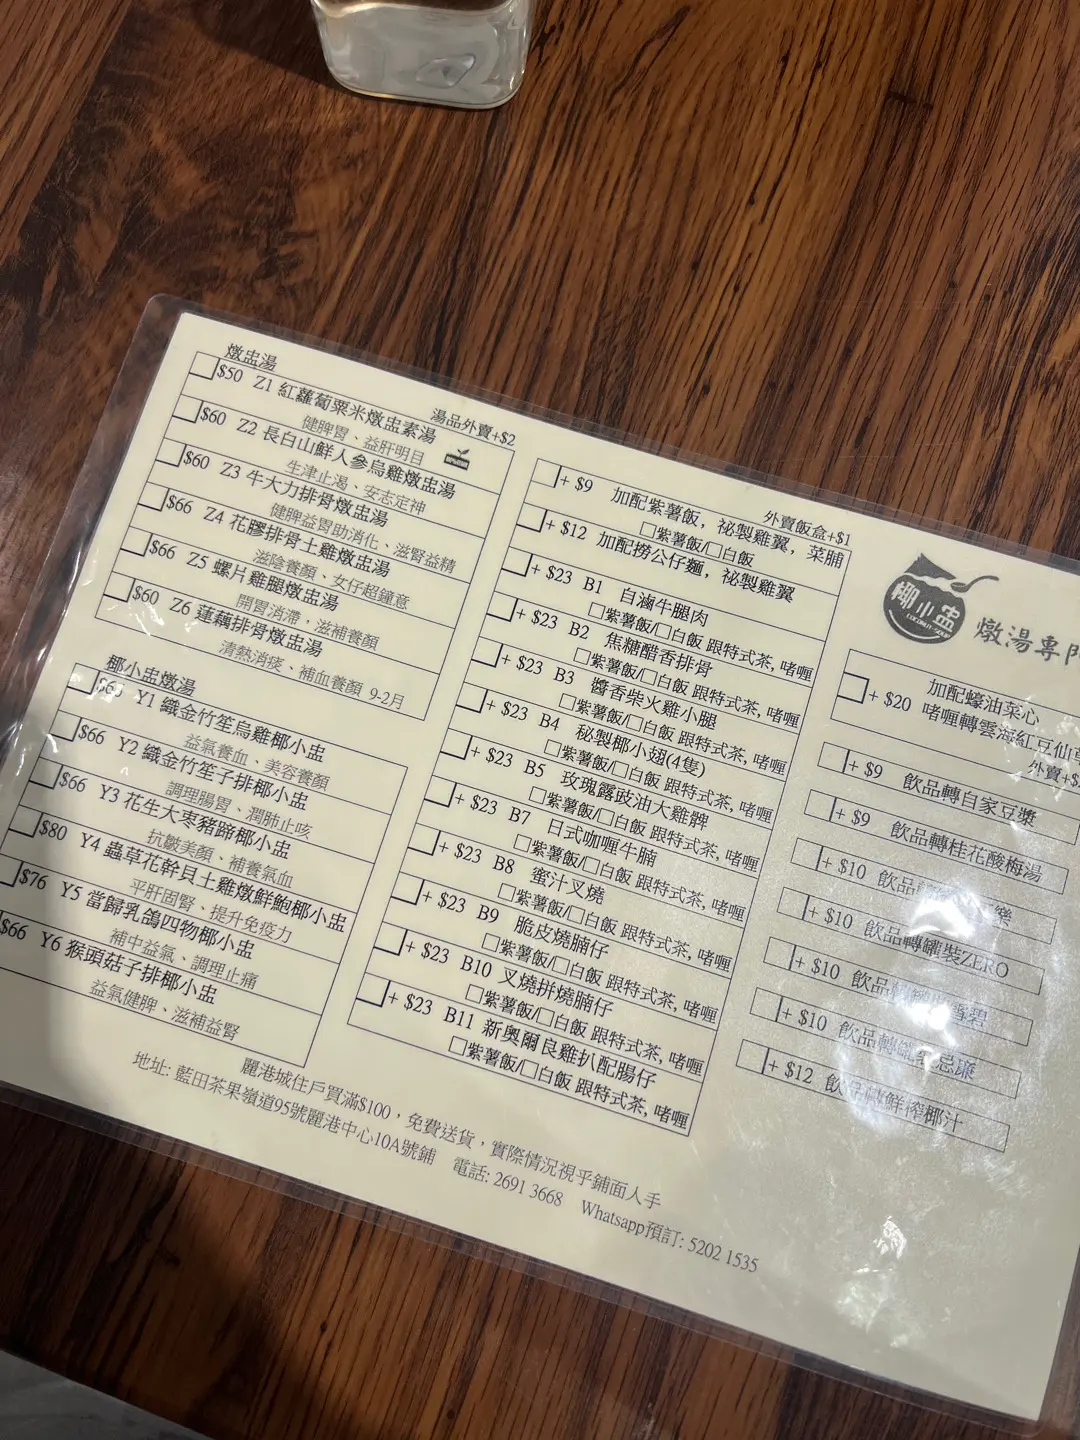 燉盅湯
湯品外賣+$2
$50 Z1 紅蘿蔔粟米燉盅素湯
健脾胃、益肝明目
$60 Z2 長白山鮮人參烏雞燉盅湯
生津止渴、安志定神
$60 Z3 牛大力排骨燉盅湯
健脾益胃助消化、滋腎益精
$66 Z4 花膠排骨土雞燉盅湯
滋陰養顏、女仔超鐘意
$66 Z5 螺片雞腿燉盅湯
開胃消滯，滋補養顏
$60 Z6 蓮藕排骨燉盅湯
清熱消痰、補血養顏 9-2月
椰小盅燉湯
Y1 織金竹笙烏雞椰小盅
益氣養血、美容養顏
$66 Y2 織金竹笙子排椰小盅
調理腸胃、潤肺止咳
$66 Y3 花生大枣豬蹄椰小盅
抗皺美顏、補養氣血
$80 Y4 蟲草花幹貝土雞燉鮮鮑椰小盅
平肝固腎、提升免疫力
$76 Y5 當歸乳鴿四物椰小盅
補中益氣、調理止痛
$66 Y6 猴頭菇子排椰小盅
益氣健脾、滋補益腎
外賣飯盒+$1
+ $9 加配紫薯飯，祕製雞翼，菜脯
紫薯飯/白飯
+ $12 加配撈公仔麵，祕製雞翼
+ $23 B1 白滷牛腿肉
紫薯飯/白飯 跟特式茶, 啫喱
+ $23 B2 焦糖醋香排骨
紫薯飯/白飯 跟特式茶, 啫喱
+ $23 B3 醬香柴火雞小腿
紫薯飯/白飯 跟特式茶, 啫喱
+ $23 B4 秘製椰小翅(4隻)
紫薯飯/白飯 跟特式茶, 啫喱
+ $23 B5 玫瑰露豉油大雞髀
紫薯飯/白飯 跟特式茶, 啫喱
+ $23 B7 日式咖喱牛腩
紫薯飯/白飯 跟特式茶, 啫喱
+ $23 B8 蜜汁叉燒
紫薯飯/白飯 跟特式茶, 啫喱
+ $23 B9 脆皮燒腩仔
紫薯飯/白飯 跟特式茶, 啫喱
+ $23 B10 叉燒拼燒腩仔
紫薯飯/白飯 跟特式茶, 啫喱
+ $23 B11 新奧爾良雞扒配腸仔
紫薯飯/白飯 跟特式茶, 啫喱
椰小盅
COCONUT SOUP
燉湯專門
+ $20 加配蠔油菜心
啫喱轉雲海紅豆仙草
外賣+$
+ $9 飲品轉自家豆漿
+ $9 飲品轉桂花酸梅湯
+ $10 飲品 樂
+ $10 飲品轉罐裝ZERO
+ $10 飲品 雪碧
+ $10 飲品轉罐 忌廉
+ $12 飲品轉鮮榨椰汁
麗港城住戶買滿$100，免費送貨，實際情況視乎鋪面人手
地址: 藍田茶果嶺道95號麗港中心10A號鋪 電話: 2691 3668 Whatsapp預訂: 5202 1535